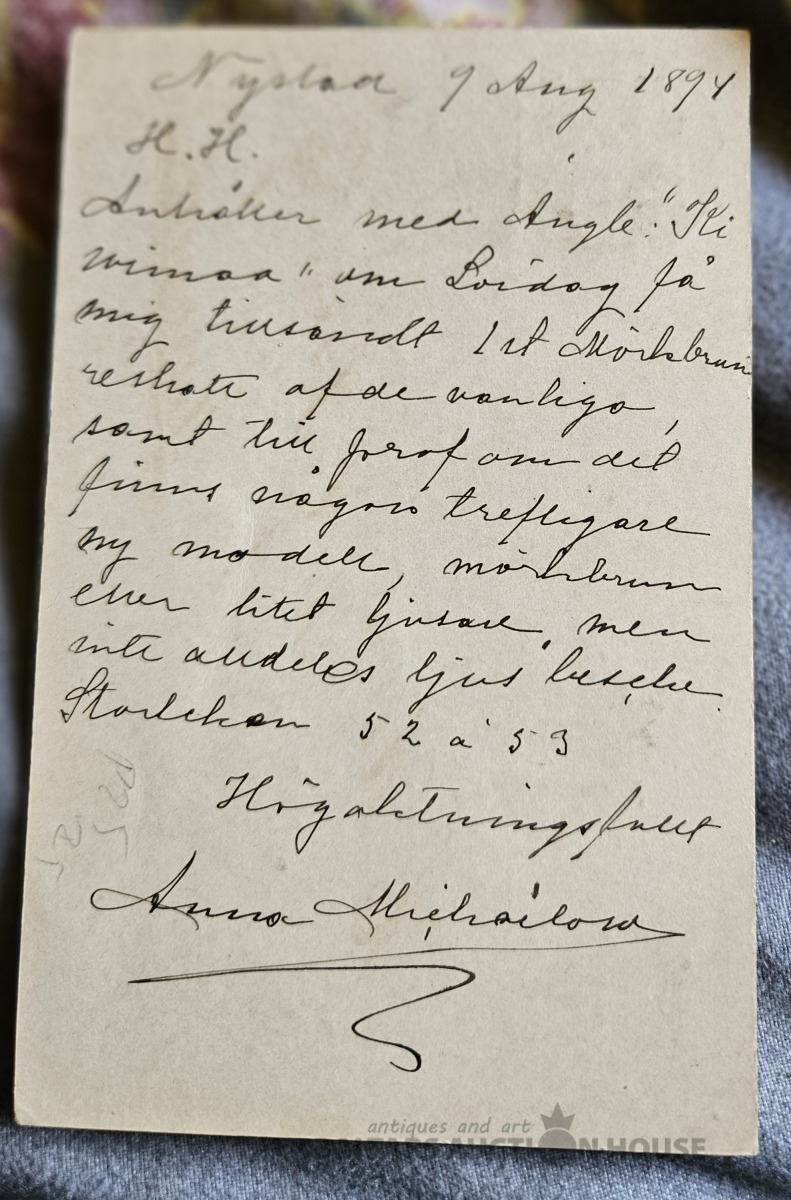 Nystad 9 Aug 1894
H. H.
Anhåller med Ångb. "Ki
wimaa" om Lördag få
mig tillsändt 1 st Mörkbrun
reshatt af de vanliga,
samt till prof om det
finns någon trefligare
ny modell, mörkbrun
eller litet ljusare, men
inte alldeles ljus besche.
Storleken 52 à 53
Högaktningsfullt
Anna Michailow
antiques and art
AUCTION HOUSE